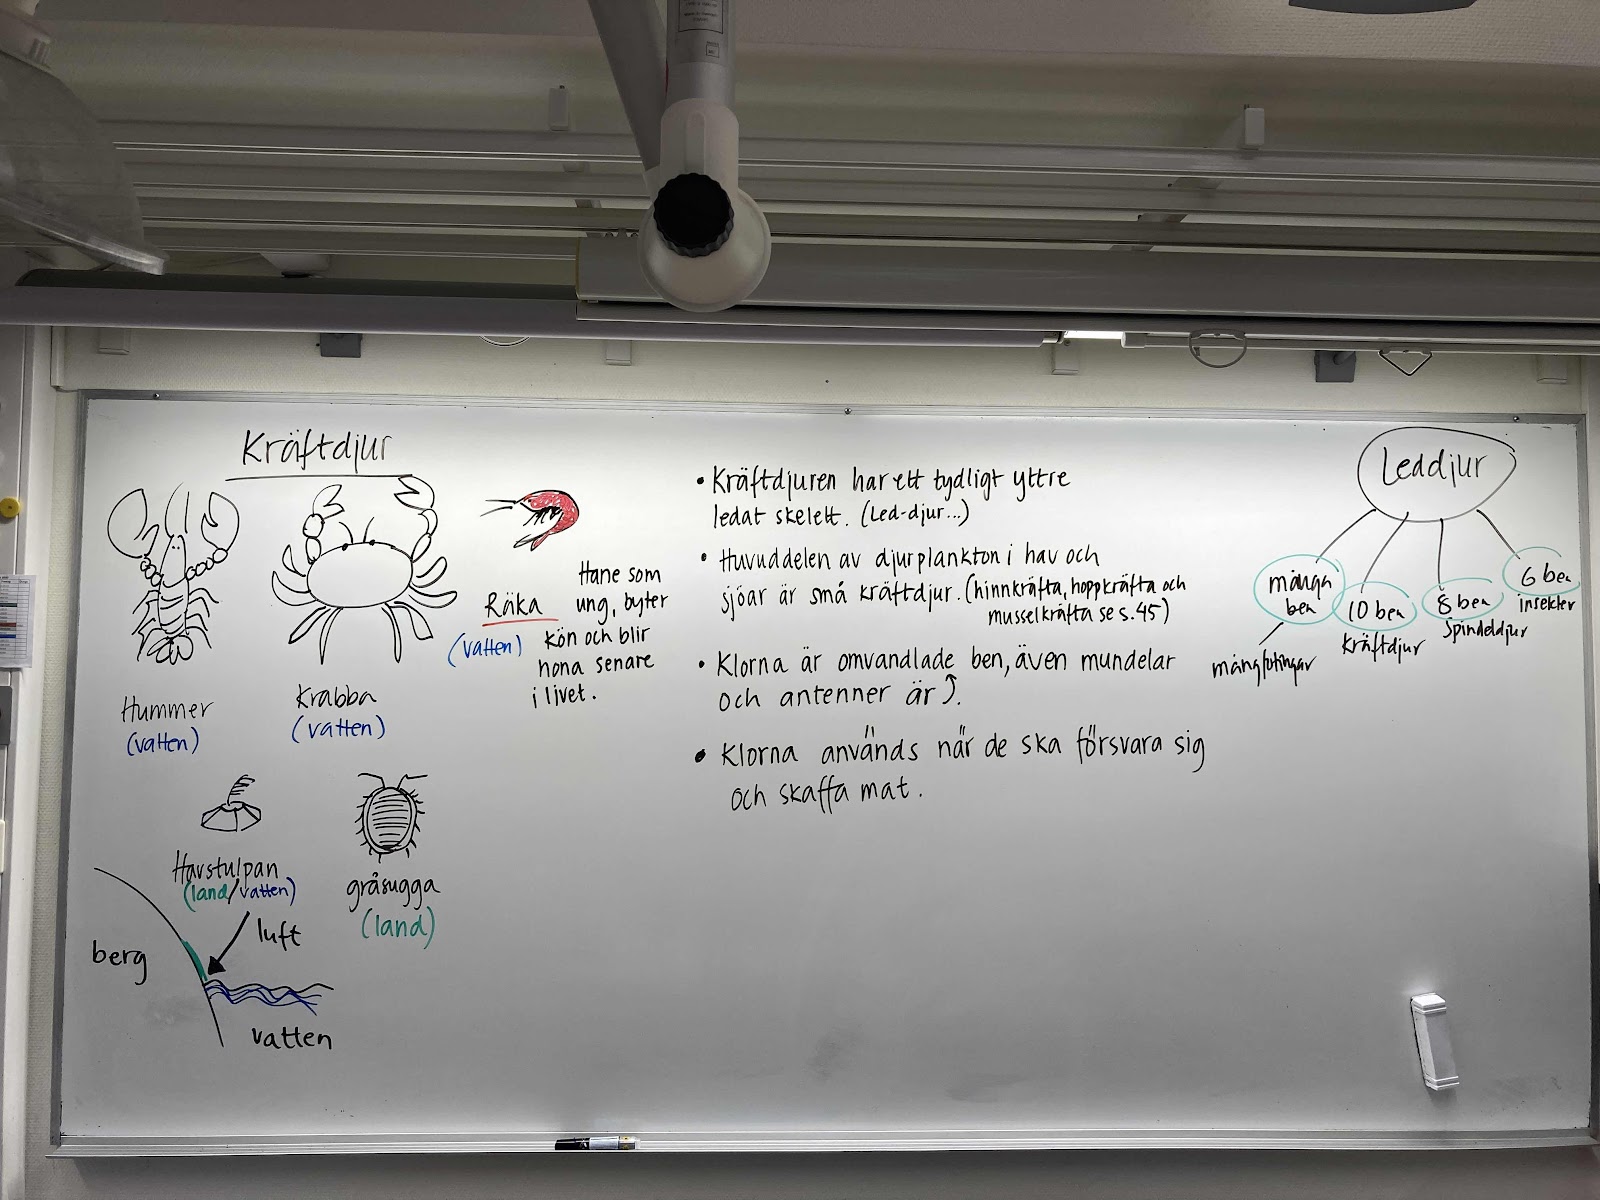 Kräftdjur
Hummer
(vatten)
Krabba
(vatten)
Räka
(vatten)
Hane som
ung, byter
kön och blir
hona senare
i livet.
Havstulpan
(land/vatten)
luft
berg
vatten
gråsugga
(land)
• Kräftdjuren har ett tydligt yttre
ledat skelett. (Led-djur...)
• Huvuddelen av djurplankton i hav och
sjöar är små kräftdjur. (hinnkräfta, hoppkräfta och
musselkräfta se s.45)
• Klorna är omvandlade ben, även mundelar
och antenner är ⤴.
• Klorna används när de ska försvara sig
och skaffa mat.
Leddjur
många
ben
mångfotingar
10 ben
kräftdjur
8 ben
Spindeldjur
6 ben
insekter